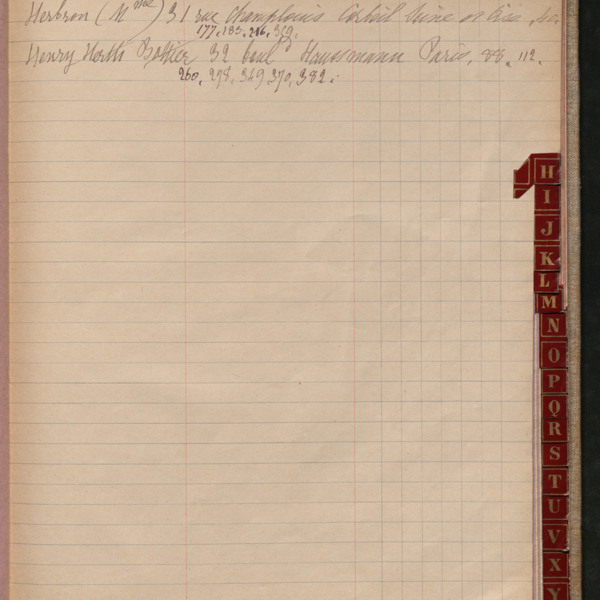 Herbron (Mme) 31 rue Champlouis Corbeil Seine et Oise,
177, 185, 216, 319.
Henry North 32 boul Haussmann Paris, 83, 112.
260, 298, 349, 370, 382.
H
I
J
K
L
M
N
O
P
Q
R
S
T
U
V
X
Y